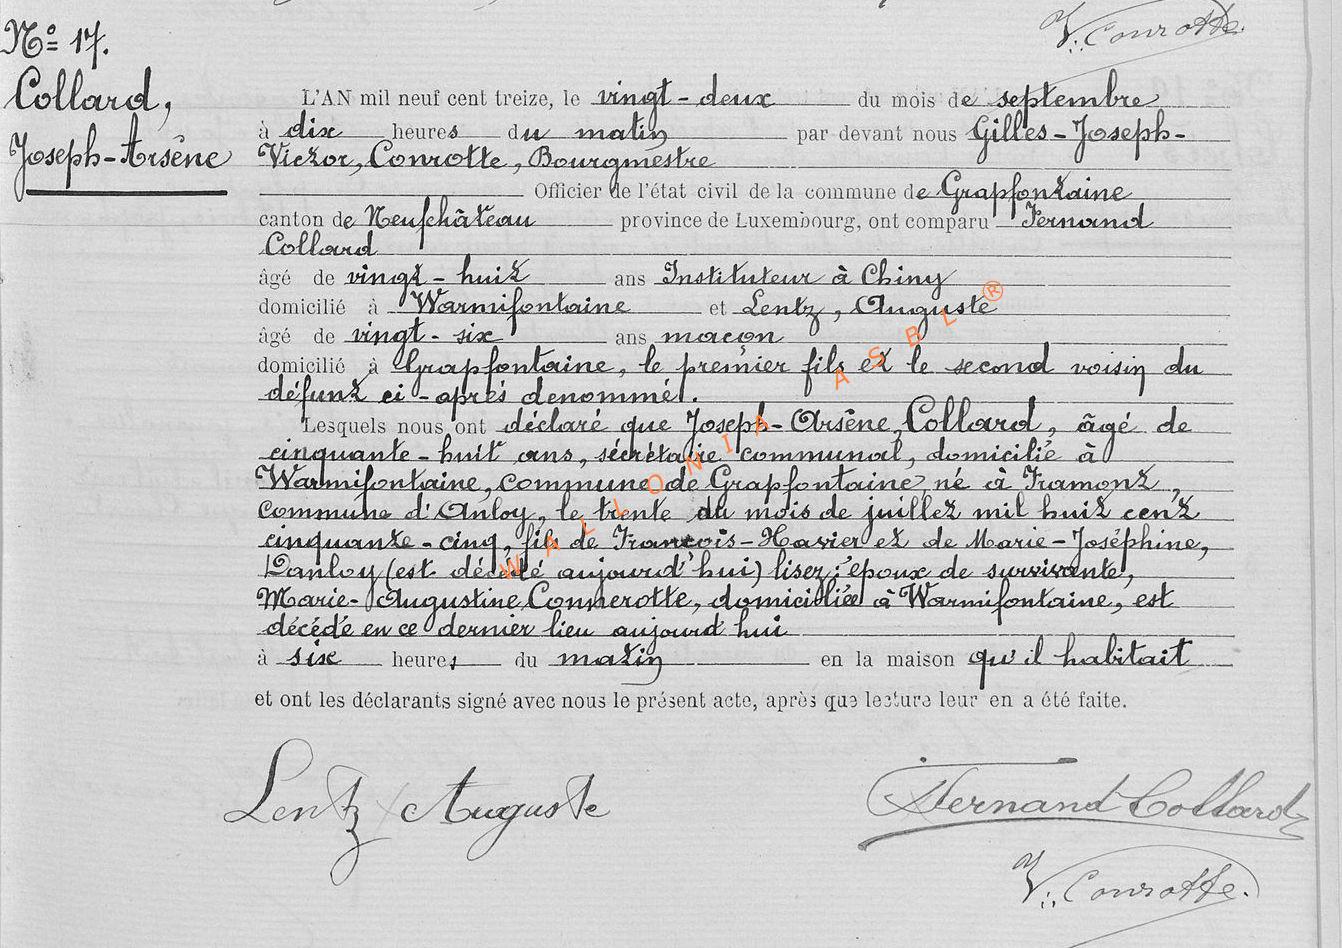 V. Conrotte.
Nº 17.
Collard,
Joseph-Arsène
L'AN mil neuf cent treize, le vingt-deux du mois de septembre
à dix heures du matin par devant nous Gilles-Joseph-
Victor, Conrotte, Bourgmestre
Officier de l'état civil de la commune de Grapfontaine
canton de Neufchâteau province de Luxembourg, ont comparu Fernand
Collard
âgé de vingt-huit ans Instituteur à Chiny
domicilié à Warmifontaine et Lentz, Auguste
âgé de vingt-six ans maçon
domicilié à Grapfontaine, le premier fils et le second voisin du
défunt ci-après dénommé.
Lesquels nous ont déclaré que Joseph-Arsène, Collard, âgé de
cinquante-huit ans, sécrétaire communal, domicilié à
Warmifontaine, commune de Grapfontaine né à Framont,
commune d'Anloy, le trente du mois de juillet mil huit cent
cinquante-cinq, fils de François-Xavier et de Marie-Joséphine,
Danloy (est décédé aujourd'hui) lisez: époux de survivante,
Marie-Augustine, Connerotte, domiciliée à Warmifontaine, est
décédé en ce dernier lieu aujourd'hui
à six heures du matin en la maison qu'il habitait
et ont les déclarants signé avec nous le présent acte, après que lecture leur en a été faite.
Lentz Auguste
Fernand Collard
V. Conrotte.
WALLONIA ASBL ®